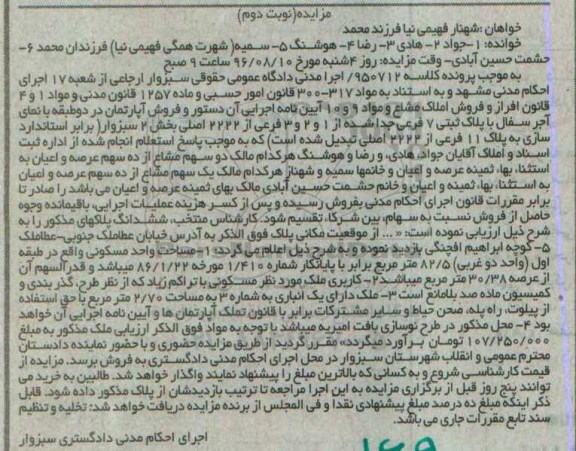 مزایده(نوبت دوم)
خواهان :شهناز فهیمی نیا فرزند محمد
خوانده: ۱-جواد ۲- هادی ۳- رضا ۴- هوشنگ ۵- سمیه( شهرت همگی فهیمی نیا) فرزندان محمد ۶-
حشمت حسین آبادی- وقت مزایده: روز ۴شنبه مورخ ۹۶/۰۸/۱۰ ساعت ۹ صبح
به موجب پرونده کلاسه ۹۵۰۷۱۲/ اجرا مدنی دادگاه عمومی حقوقی سبزوار ارجاعی از شعبه ۱۷ اجرای
احکام مدنی مشهد و به استناد به مواد ۳۱۷-۳۰۰ قانون امور حسبی و ماده ۱۲۵۷ قانون مدنی و مواد ۱ و ۴
قانون افراز و فروش املاک مشاع و مواد ۹ و ۱۰ آیین نامه اجرایی آن دستور و فروش آپارتمان در دوطبقه با نمای
آجر سفال با پلاک ثبتی ۷ فرعی جدا شده از ۱ و ۲ و ۳ فرعی از ۲۲۲۲ اصلی بخش ۲ سبزوار( برابر استاندارد
سازی به پلاک ۱۱ فرعی از ۲۲۲۲ اصلی تبدیل شده است) که به موجب پاسخ استعلام انجام شده از اداره ثبت
اسناد و املاک آقایان جواد، هادی، و رضا و هوشنگ هرکدام مالک دو سهم مشاع از ده سهم عرصه و اعیان به
استثنا، بها، ثمینه عرصه و اعیان و خانمها سمیه و شهناز هرکدام مالک یک سهم مشاع از ده سهم عرصه و اعیان
به استثنا، بها، ثمینه و اعیان و خانم حشمت حسین آبادی مالک بهای ثمینه عرصه و اعیان می باشد را صادر تا
برابر مقررات قانون اجرای احکام مدنی بفروش رسیده و پس از کسر هزینه عملیات اجرایی، باقیمانده وجوه
حاصل از فروش نسبت به سهام، بین شرکا، تقسیم شود. کارشناس منتخب، ششدانگ پلاکهای مذکور را به
شرح ذیل ارزیابی نموده است: « ... از موقعیت مکانی پلاک فوق الذکر به آدرس خیابان عطاملک جنوبی-عطاملک
۵- کوچه ابراهیم افچنگی بازدید نموده و به شرح ذیل اعلام می گردد: ۱-مساحت واحد مسکونی واقع در طبقه
اول (واحد دو غربی) ۸۲/۵ متر مربع برابر با پایانکار شماره ۱/۴۱۰ مورخه ۸۶/۱/۲۲ میباشد و قدرالسهم آن
از عرصه ۳۰/۳۸ متر مربع میباشد ۲- کاربری ملک مورد نظر مسکونی با تراکم زیاد که از نظر طرح، گذر بندی و
کمیسیون ماده صد بلامانع است ۳- ملک دارای یک انباری به شماره ۳ به مساحت ۲/۷۰ متر مربع با حق استفاده
از پیلوت، راه پله، صحن حیاط و سایر مشترکات برابر با قانون تملک آپارتمان ها و آیین نامه اجرایی آن خواهد
بود ۴- محل مذکور در طرح نوسازی بافت امیریه میباشد با توجه به مواد فوق الذکر ارزیابی ملک مذکور به مبلغ
۱۰۷/۲۵۰/۰۰۰ تومان برآورد میگردد» مقرر گردید از طریق مزایده حضوری و با حضور نماینده دادستان
محترم عمومی و انقلاب شهرستان سبزوار در محل اجرای احکام مدنی دادگستری به فروش برسد. مزایده از
قیمت کارشناسی شروع و به کسانی که بالاترین مبلغ را پیشنهاد نمایند واگذار خواهد شد. طالبین به خرید می
توانند پنج روز قبل از برگزاری مزایده به این اجرا مراجعه تا ترتیب بازدیدشان از پلاک مذکور داده شود. قابل
ذکر اینکه مبلغ ده درصد مبلغ پیشنهادی نقدا و فی المجلس از برنده مزایده دریافت خواهد شد؛ تخلیه و تنظیم
سند تابع مقررات جاری می باشد.
اجرای احکام مدنی دادگستری سبزوار